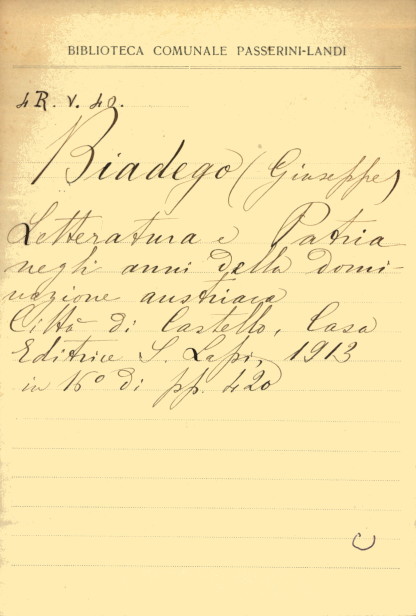 BIBLIOTECA COMUNALE PASSERINI-LANDI
4R. V. 40.
Biadego (Giuseppe)
Letteratura e Patria
negli anni della domi-
nazione austriaca
Città di Castello, Casa
Editrice S. Lapi, 1913
in 16º di pp. 420